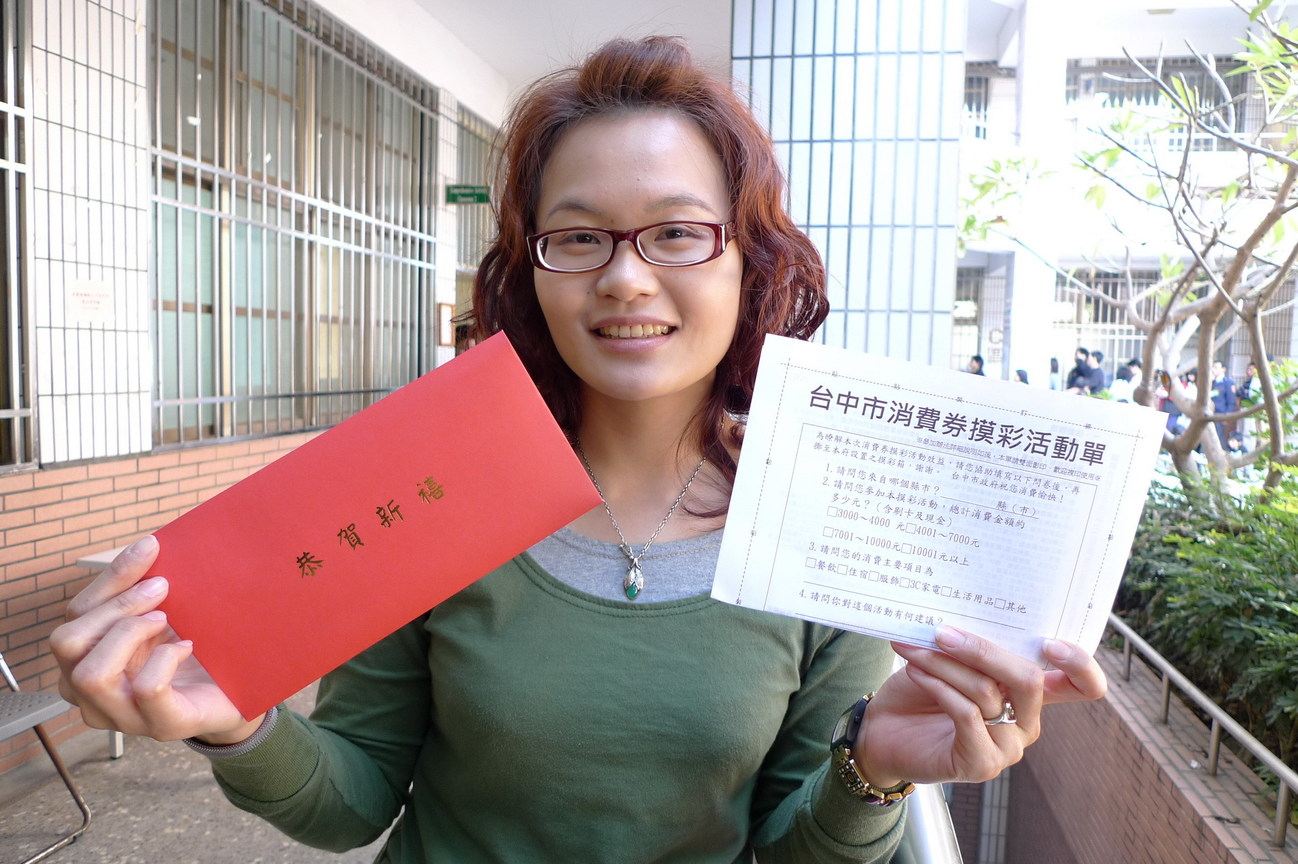 恭賀新禧
台中市消費券摸彩活動單
※參加辦法詳細說明如後,本單請雙面影印,歡迎複印使用※
為瞭解本次消費券摸彩活動效益,請您協助填寫以下問卷後,再
擲至本府設置之摸彩箱,謝謝。 台中市政府祝您消費愉快!
1. 請問您來自哪個縣市? 縣(市)
2. 請問您參加本摸彩活動,總計消費金額約
多少元?(含刷卡及現金)
□3000~4000 元□4001~7000元
□7001~10000元□10001元以上
3. 請問您的消費主要項目為
□餐飲□住宿□服飾□3C家電□生活用品□其他
4. 請問你對這個活動有何建議?